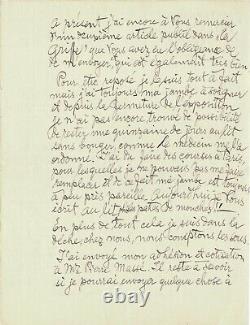 A présent j'ai encore à vous remercier
d'un deuxième article publié dans "La
Griffe", que vous avez eu l'obligeance de
de m'envoyer, qui est également très bien
Pour être reposé je le suis tout à fait
mais j'ai toujours ma jambe à soigner
et depuis la fermeture de l'exposition
je n'ai pas encore trouvé de possibilité
de rester une quinzaine de jours au lit
sans bouger comme le médecin me l'a
ordonné. J'ai dû faire des courses à Paris,
pour lesquelles je ne pouvais pas me faire
remplacer et de ce fait ma jambe est toujours
à peu près pareille. Aujourd'hui je vous
écrit au lit des pattes de mouches!!
En plus de tout cela je suis dans la
dèche chez nous, nous comptons les sous.
J'ai envoyé mon adhésion et cotisation
à Mr Pierre Massé. Il reste à savoir
si je pourrai envoyer quelque chose à